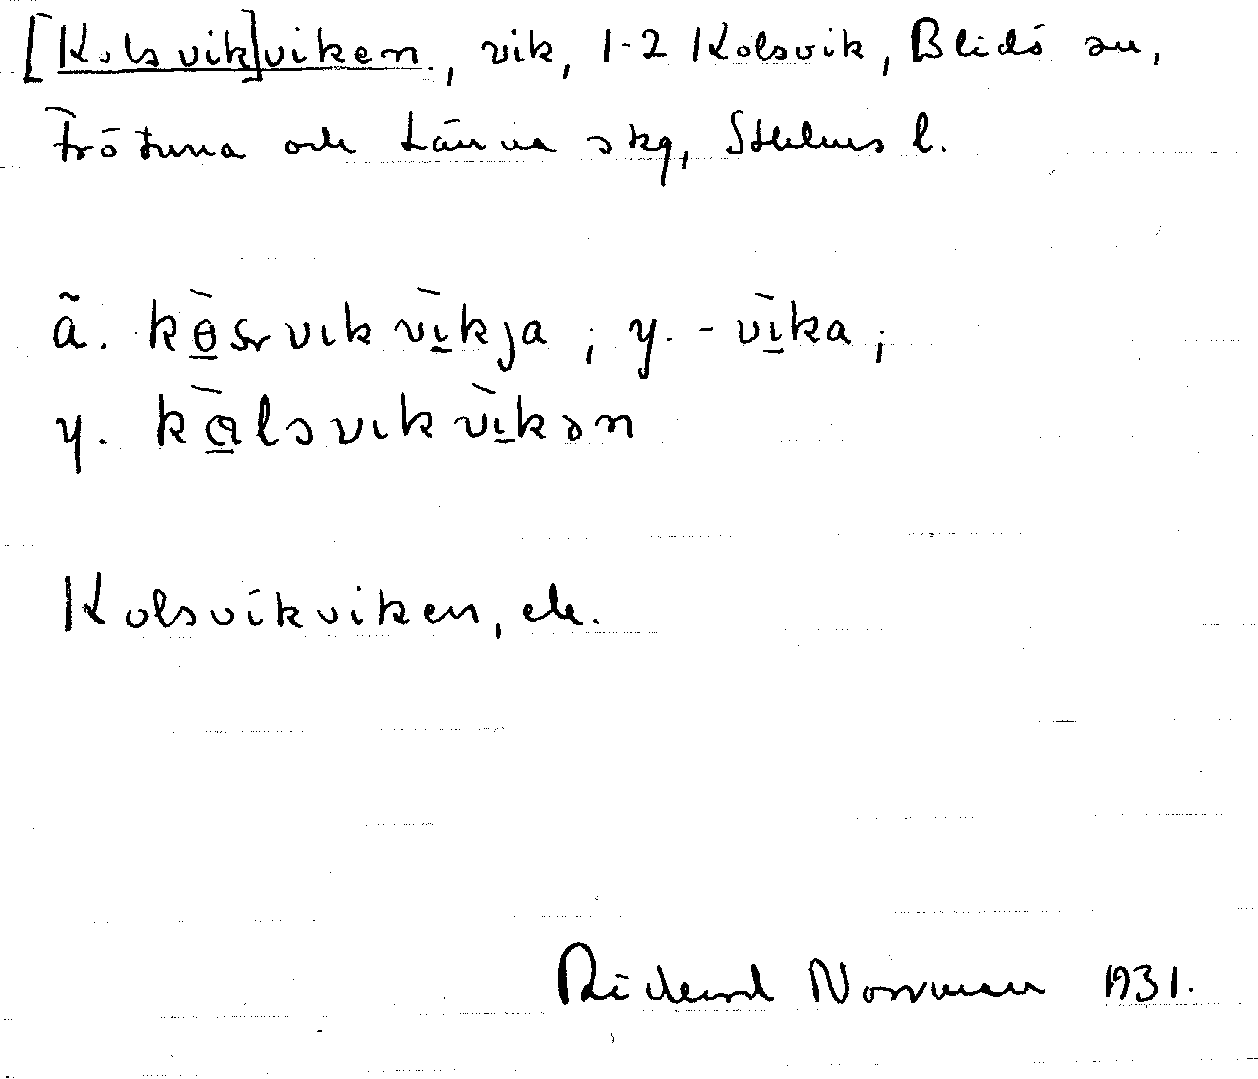 [Kolsvik]viken, vik, 1-2 Kolsvik, Blidö sn,
Frötuna och Länna skg, Sthlms l.
ã. kòsvikvìkja; y. -vìka;
y. kàlsvikvìkən
Kolsvikviken, ek.
Rickard Norrman 1931.